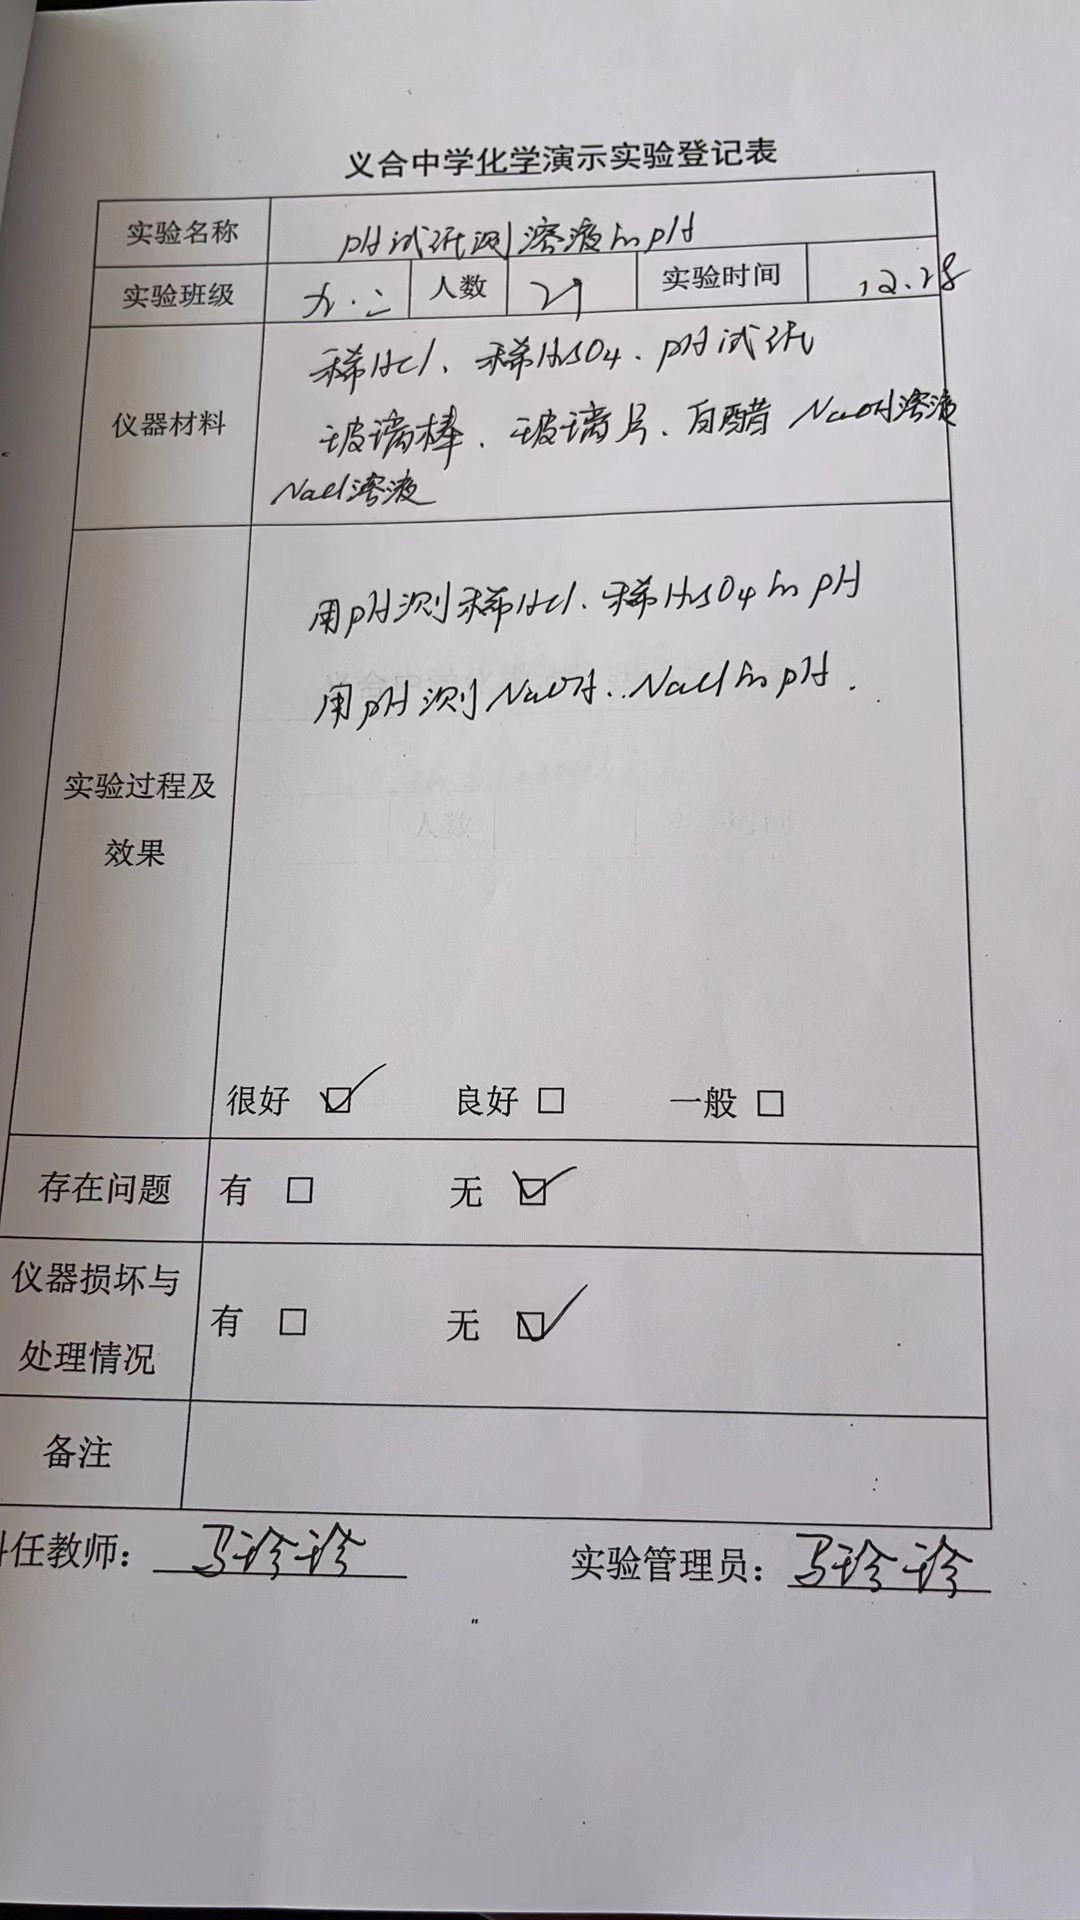 义合中学化学演示实验登记表
实验名称 pH试纸测溶液的pH
实验班级 九.二 人数 29 实验时间 12.28
仪器材料
稀HCl、稀H2SO4、pH试纸
玻璃棒、玻璃片、白醋 NaOH溶液
NaCl溶液
实验过程及
效果
用pH测稀HCl、稀H2SO4的pH
用pH测NaOH..NaCl的pH.
很好 ☑ 良好 □ 一般 □
存在问题 有 □ 无 ☑
仪器损坏与
处理情况
有 □ 无 ☑
备注
任教师: 马珍珍 实验管理员: 马珍珍